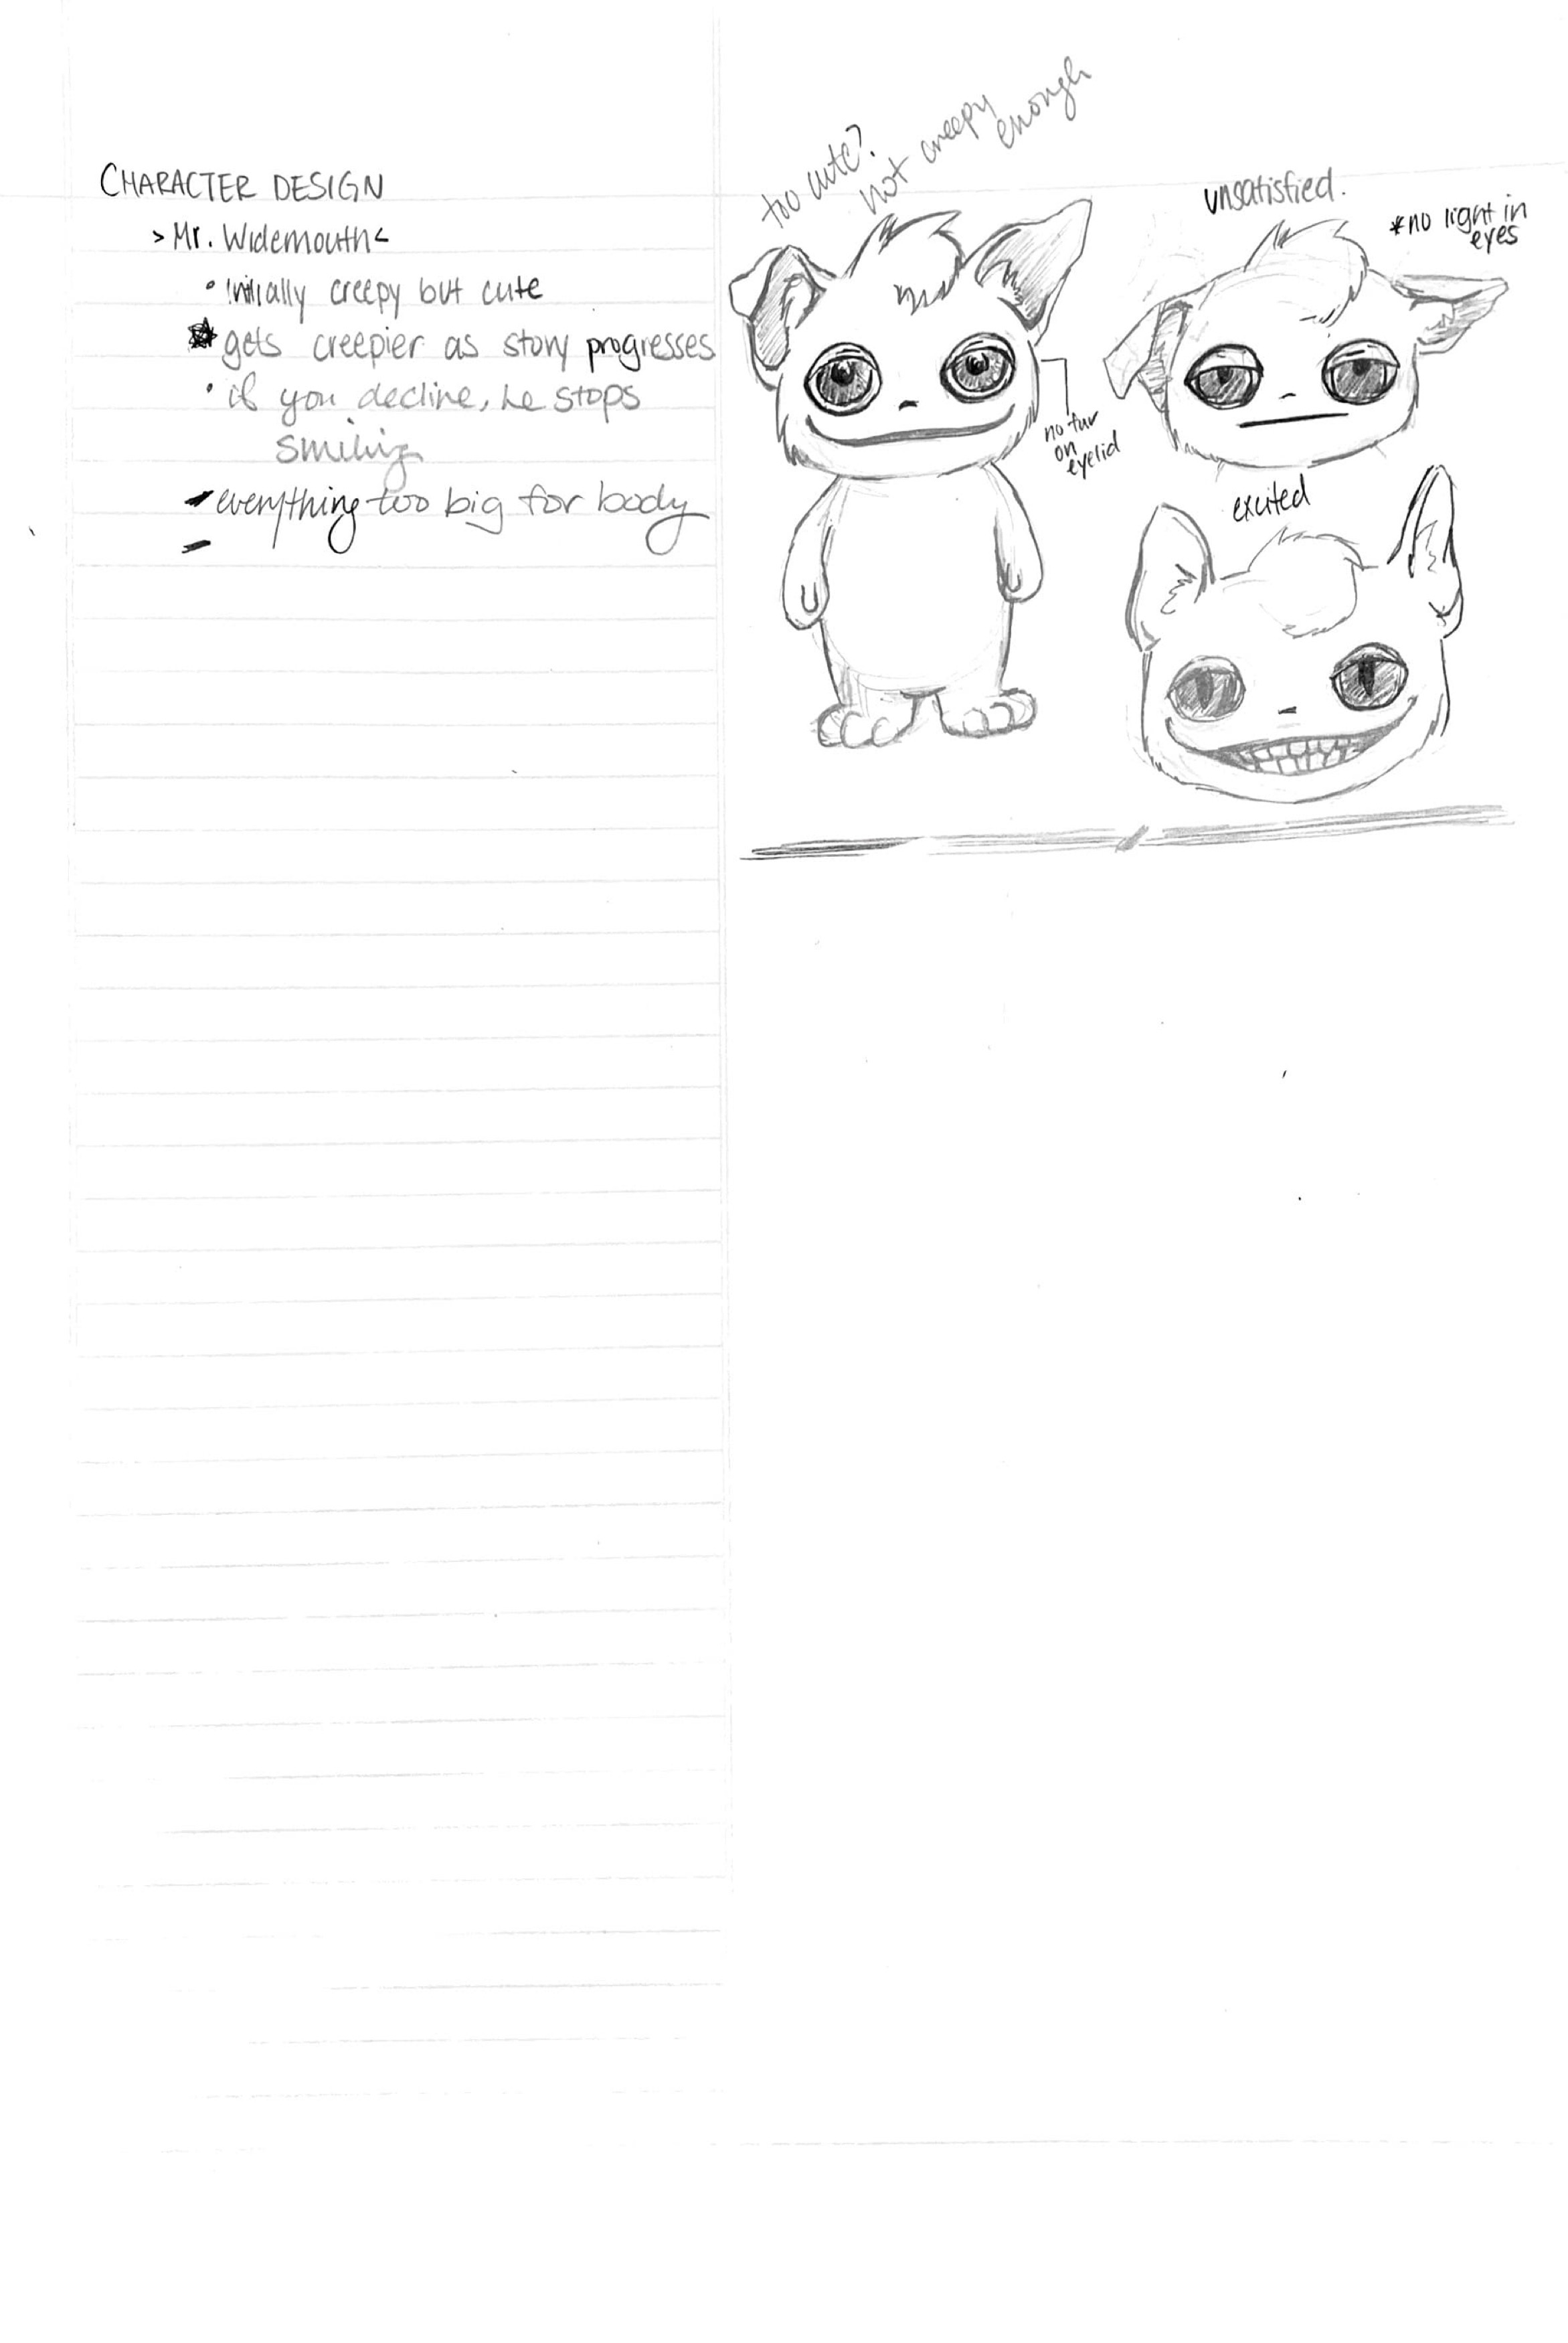 CHARACTER DESIGN
> Mr. Widemouth <
• initially creepy but cute
gets creepier as story progresses
• if you decline, he stops
smiling
- everything too big for body
-
too cute?
not creepy
enough
unsatisfied.
*no light in
eyes
no fur
on
eyelid
excited